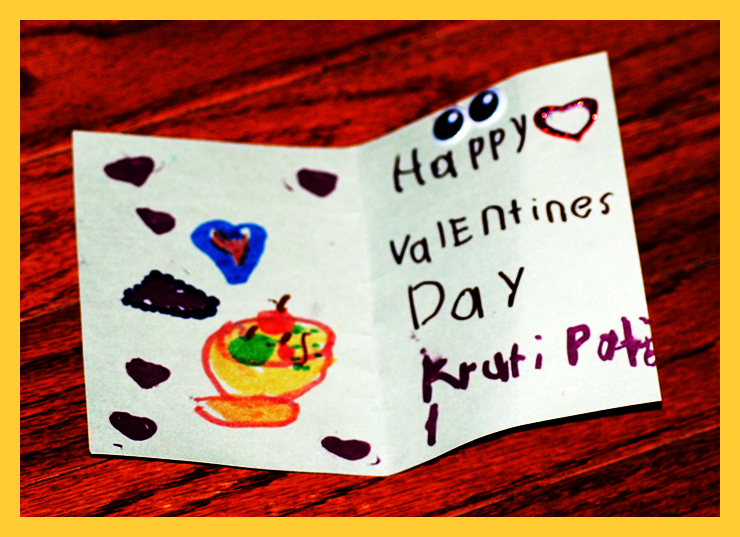 Happy
ValEntines
Day
Kruti Pati
l